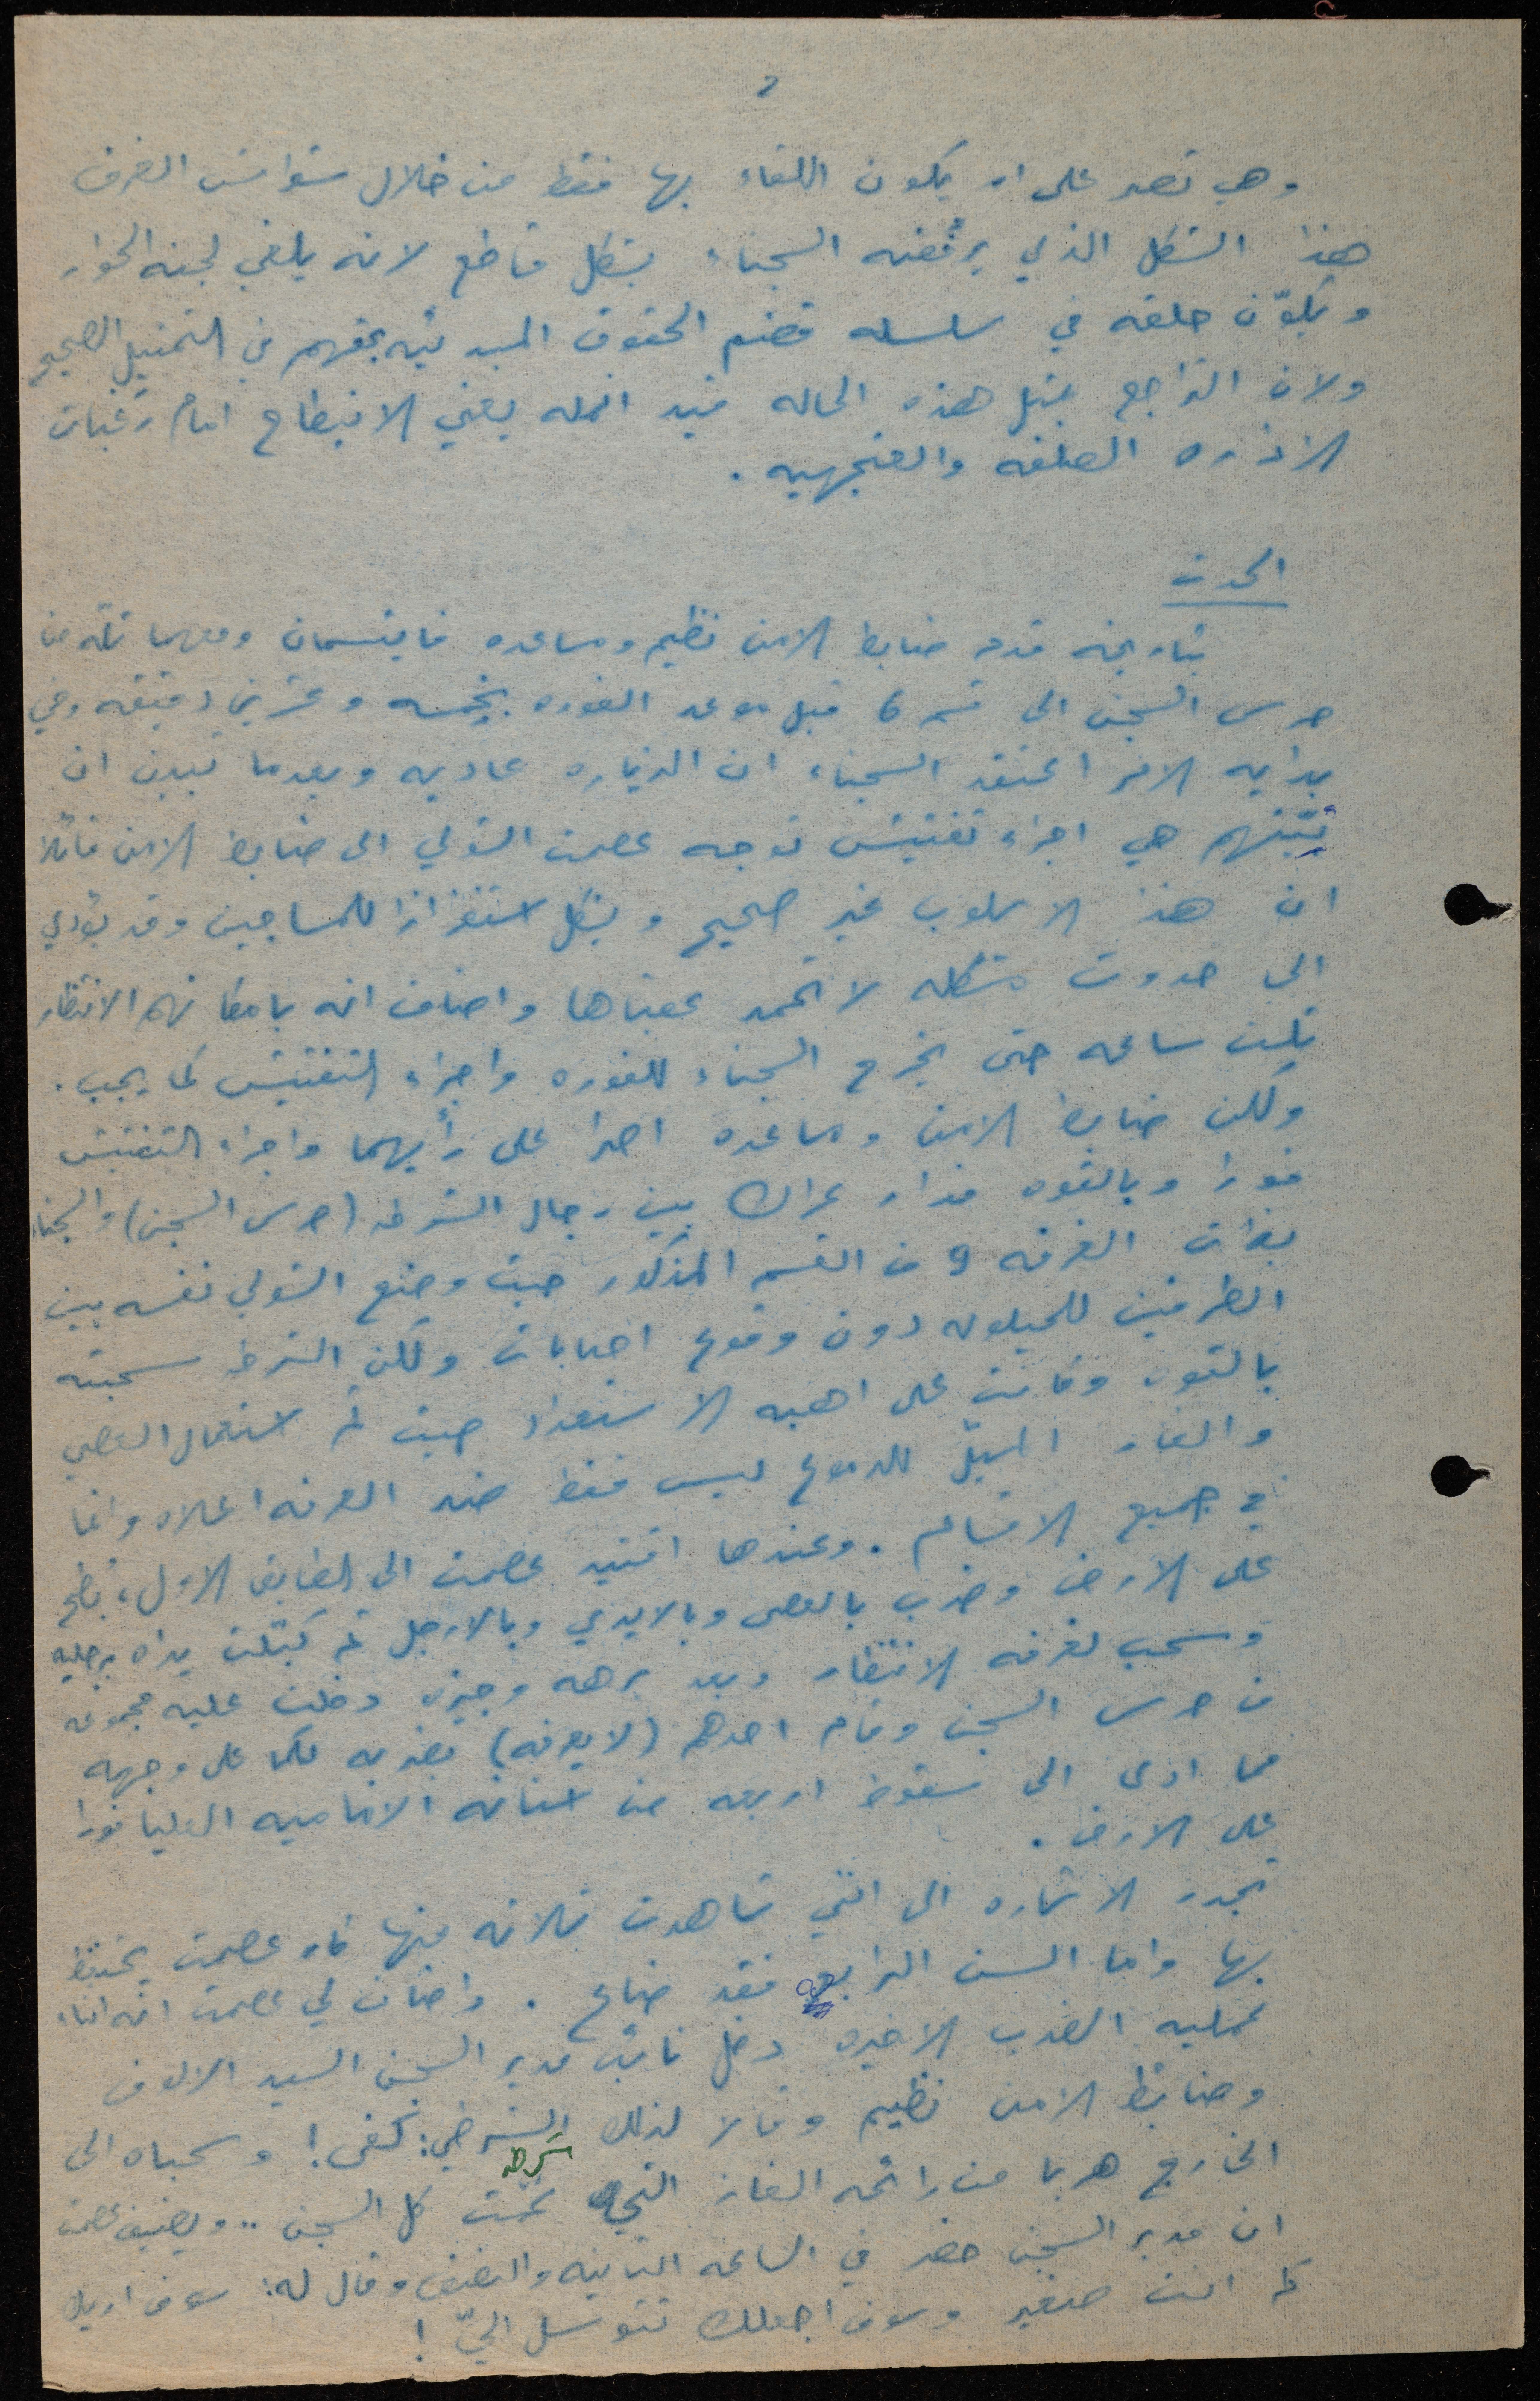 2
وهي تصر على ان يكون اللقاء بها فقط من خلال شواش الغرف
هذا الشكل الذي يرفضه السجناء بشكل قاطع لانه يلغي لجنه الحوار
ويكوّن حلقه في سلسله قضم الحقوق المبدئيه بحقهم في التمثيل الصحيح
ولان التراجع بمثل هذه الحاله قيد انمله يعني الانبطاح امام رغبات
الاداره الصلفه والعنجهيه .
الحدث
بتاريخه قدم ضابط الامن نظيم ومساعده فايتسمان ومعهما ثله من
حرس السجن الى قسم 6 قبل موعد الفوره بخمسه وعشرين دقيقه وفي
بدايه الامر اعتقد السجناء ان الزياره عاديه وبعدما تبين ان
نيّتهم هي اجراء تفتيش توجه عصمت الى ضابط الامن قائلا
ان هذا الاسلوب غير صحيح ويشكل استفزازا للمساجين وقد يؤدي
الى حدوث مشكله لا تحمد عقباها واضاف انه بامكانهم الانتظار
ثلث ساعه حتى يخرج السجناء للفوره واجراء التفتيش كما يجب .
ولكن ضابط الامن ومساعده اصرا على رأيهما واجراء التفتيش
فورا وبالقوه فدار عراك بين رجال الشرطه (حرس السجن) والسجناء
بذات الغرفه 9 من القسم المذكور حيث وضع نفسه بين
الطرفين للحيلوله دون وقوع اصابات ولكن الشرطه سحبته
بالقوه وكانت على اهبه الاستعداد حيث تم استعمال العصي
والغاز المسيّل للدموع ليس فقط ضد الغرفه اعلاه وانما
في جميع الاقسام . وعندها اقتيد عصمت الى الطابق الاول ، بُطح
على الارض وضرب بالعصى وبالايدي وبالارجل ثم كبّلت يداه برجليه
وسحب لغرفه الانتظار وبعد برهه وجيزه دخلت عليه مجموعه
من حرس السجن وقام احدهم (لا يعرفه) بضربه لكما على وجهه
مما ادى الى سقوط اربعه من اسنانه الاماميه العليا فورا
على الارض .
تجدر الاشاره الى انني شاهدت ثلاثه منها كان عصمت يحتفظ
بها واما السن الرابع فقد ضاع . واضاف لي عصمت انه اثناء
عمليه الضرب الاخيره دخل نائب مدير السجن السيد
وضابط الامن نظيم وقالا لذلك الشرطي: كفى ! وسحباه الى
الخارج هربا من رائحه الغاز التي عمّت كل السجن .. ويضيف عصمت
ان مدير السجن حضر في الساعه الثانيه والنصف وقال له: سوف اريك
كم انت صغير وسوف اجعلك تتوسل اليّ !